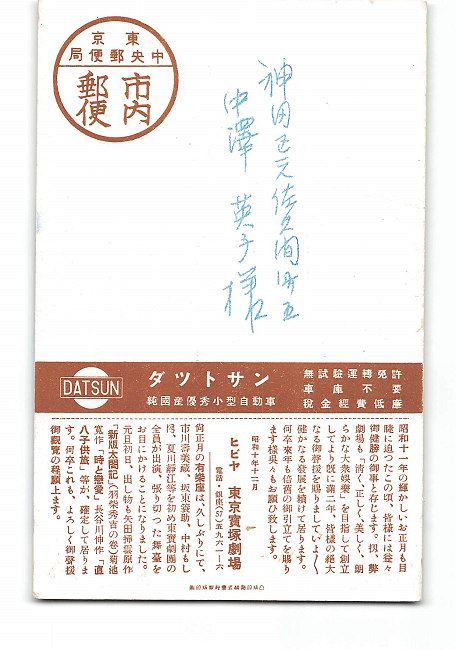 東京
中央郵便局
市内
郵便
神田区元佐久間町五
中澤 英子様
DATSUN
ダットサン
純國産優秀小型自動車
無試驗運轉免許
車庫不要
税金經費低廉
昭和十一年の輝かしいお正月も目
睫に迫つたこの頃、皆様には益々
御健勝の御事と存じます。扨、弊
劇場も「清く、正しく、美しく、朗
らかな大衆娯樂」を目指して創立
してより既に滿二年、皆様の絕大
なる御聲援を賜りましていよ〱
健かなる發展を續けて居ります。
何卒來年も倍舊の御引立てを賜り
ます様呉々もお願ひ致します。
昭和十年十二月
ヒビヤ 東京寶塚劇場
電話・銀座(57)五九六一―六
尙正月の有樂座は、久しぶりにて、
市川壽美藏、坂東簑助、中村もし
ほ、夏川靜江等を初め東寶劇團の
全員が出演、張り切つた舞臺を
お目にかけることになりました。
元旦初日、出し物も矢田挿雲原作
「新版太閤記」(羽柴秀吉の卷)菊池
寬作「時と戀愛」長谷川伸作「直
八子供旅」等が、確定して居りま
す。何卒これも、よろしく御聲援
御觀覽の程願上ます。